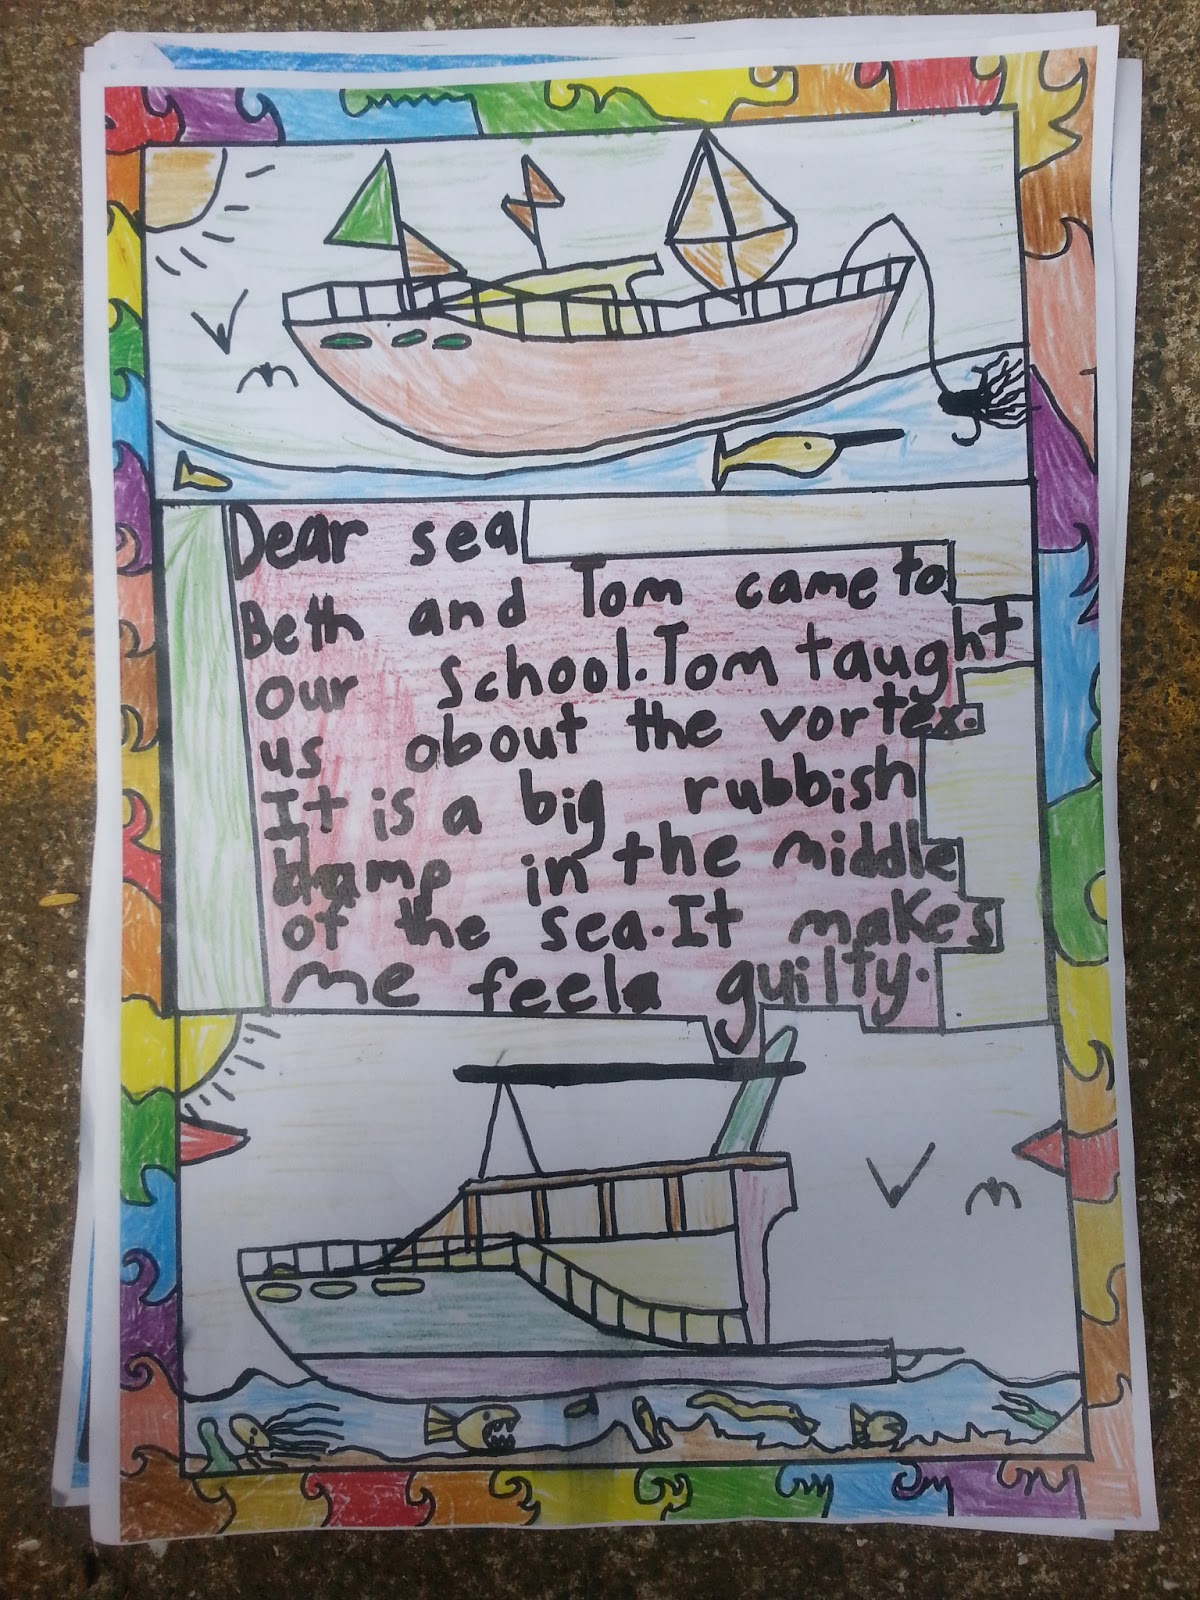 Dear sea
Beth and Tom came to
our school. Tom taught
us about the vortex.
It is a big rubbish
in the middle
of the sea. It makes
me feela guilty.